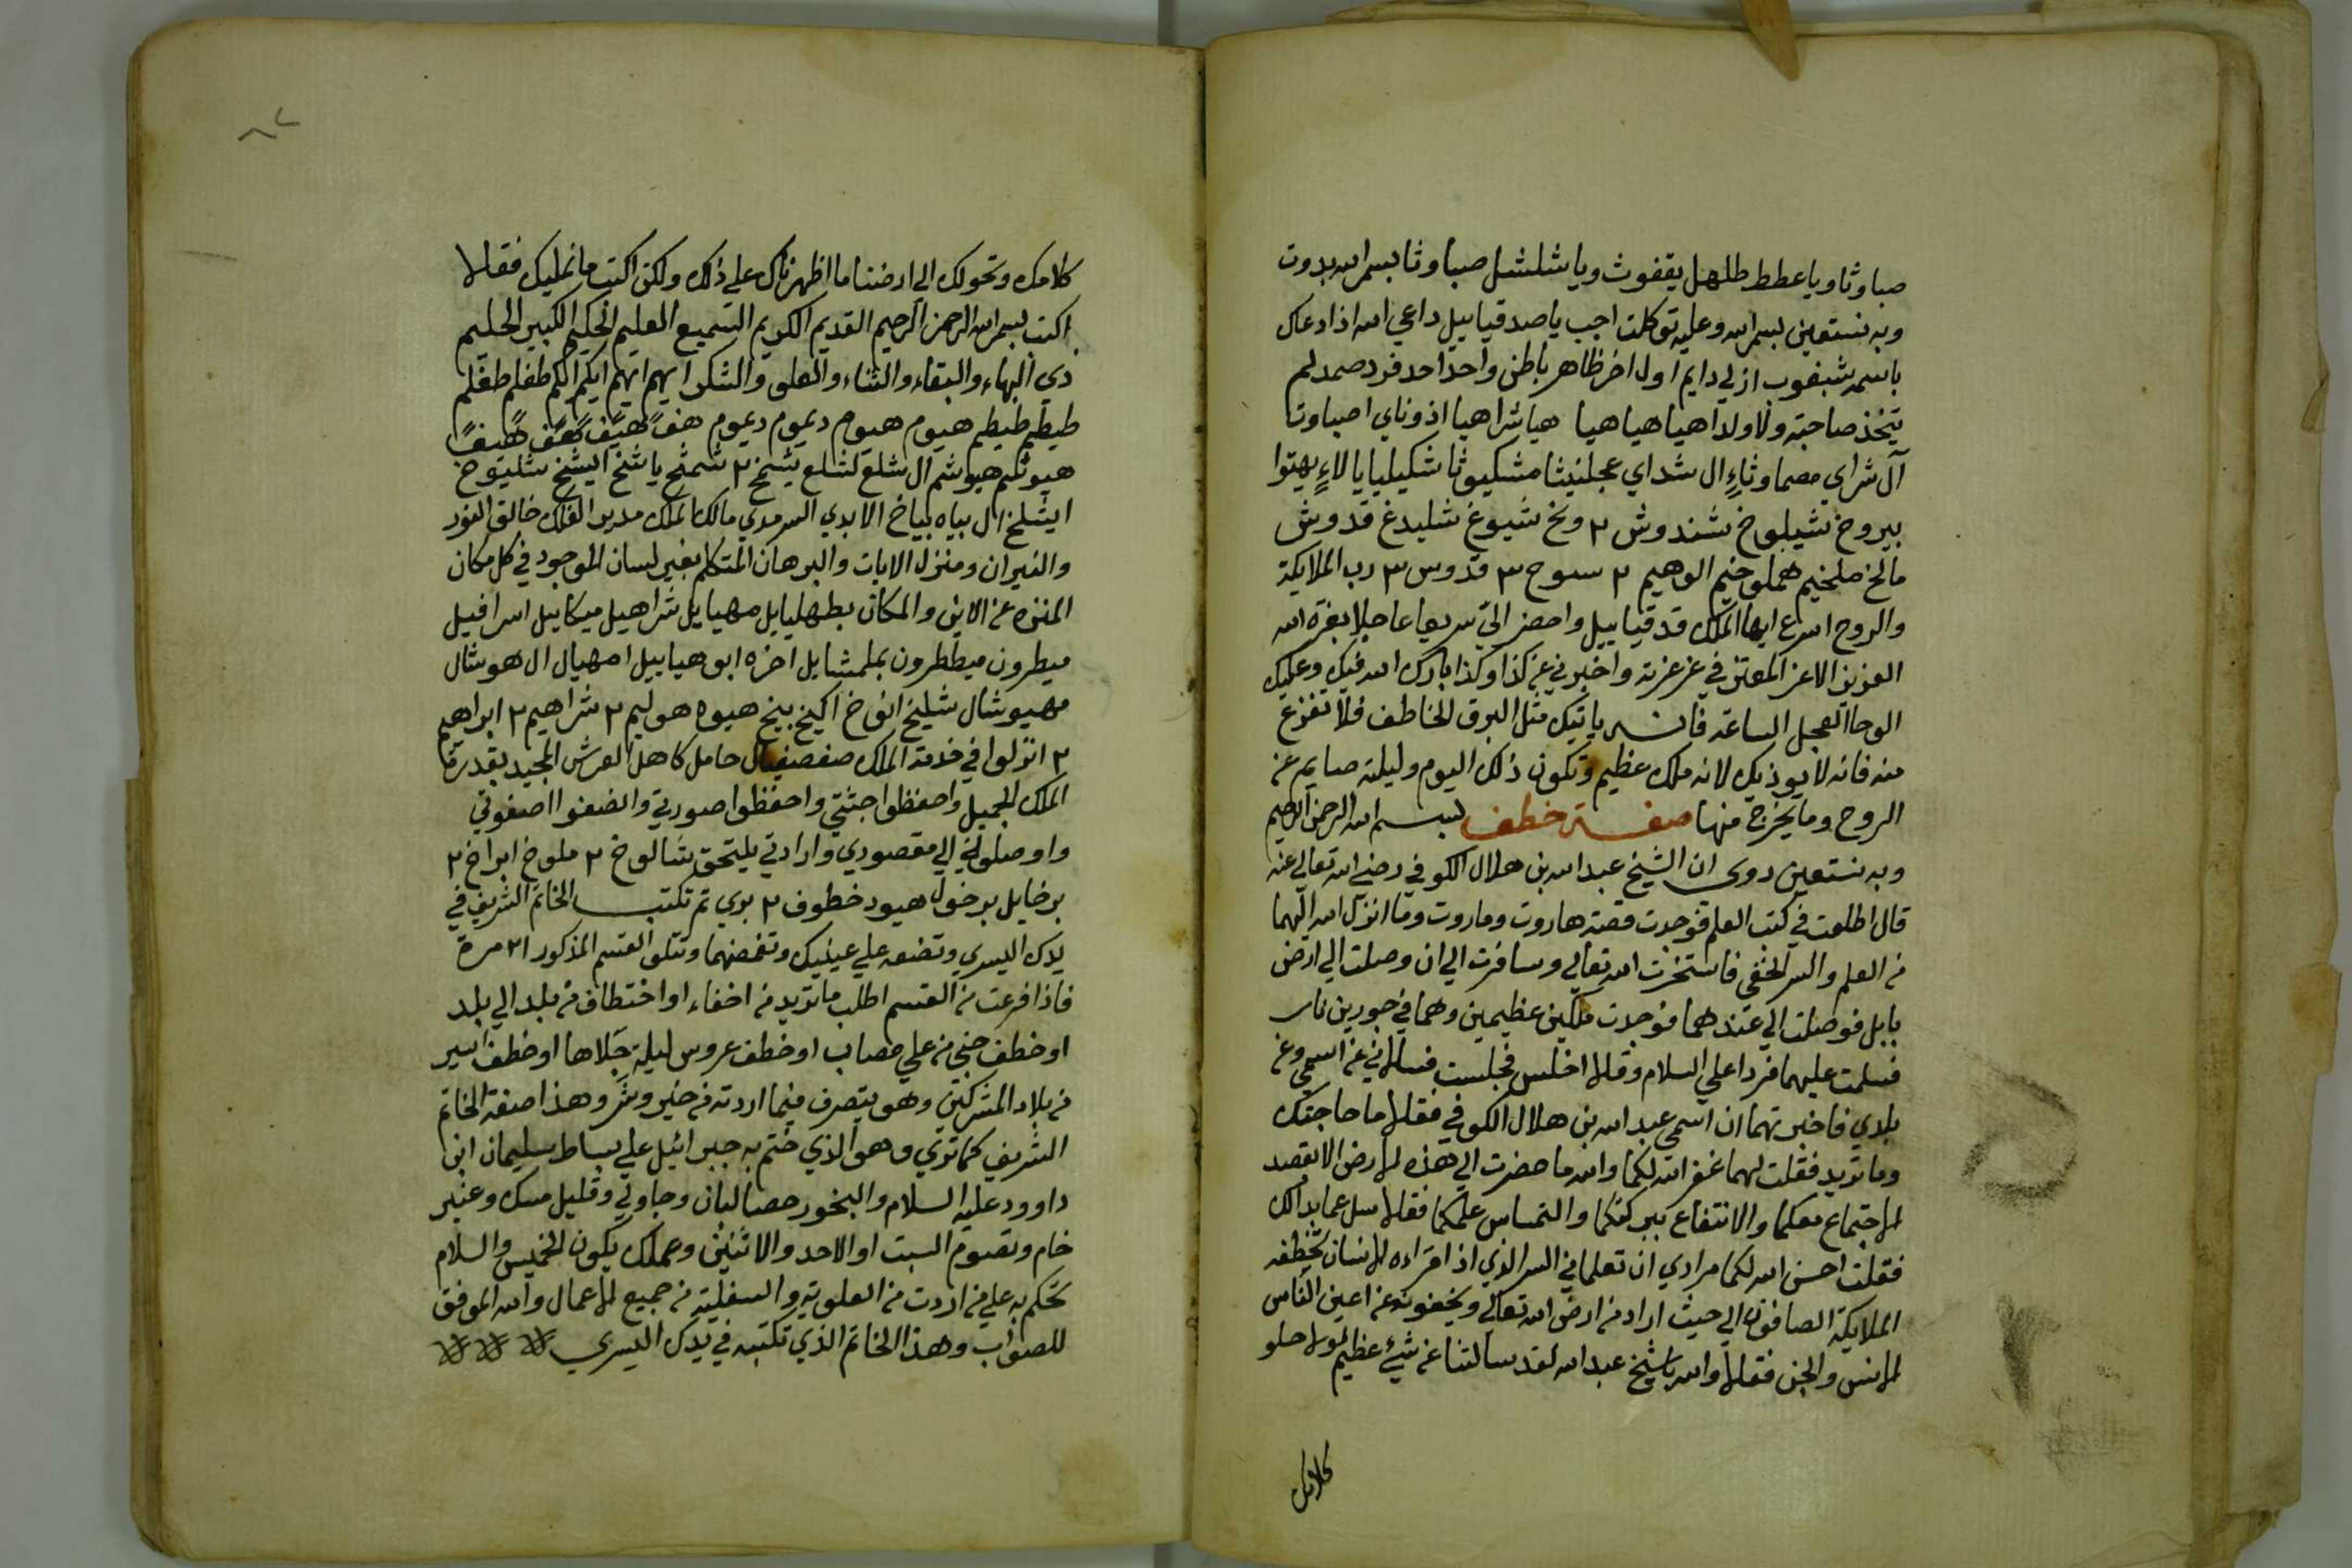 صباوثا ويا عطط طلهل يقفوث ويا شلشل صباوثا بسم الله بدوت
وبه نستعين بسم الله وعليه توكلت اجب يا صدقيابيل داعي الله اذا دعاك
باسمه شبغوب ازلي دايم اول اخر ظاهر باطن واحد احد فرد صمد لم
يتخذ صاحبة ولا ولدا هيا هيا هيا هيا شراهيا اذوناي اصباوت
آل شراي مصماوثاء ال شداي عجلنيثا مشكيوثا شكيليا يا لاء يهتوا
بيروخ شيلوخ شندوش ٢ ونخ شيوغ شليدغ قدوش
مالخ ملخيم هملوخيم الوهيم ٢ سبوح ٣ قدوس ٣ رب الملايكة
والروح اسرع ايها الملك قدقيابيل واحضر الي سريعا عاجلا بعزة الله
العزيز الاعز المعتز في عز عزته واخبرني عن كذا وكذا بارك الله فيك وعليك
الوحا العجل الساعة فانه ياتيك مثل البرق الخاطف فلا تفزع
منه فانه لا يوذيك لانه ملك عظيم وتكون ذلك اليوم وليلته صايم عن
الروح وما يخرج منها صفة خطف بسم الله الرحمن الرحيم
وبه نستعين روي ان الشيخ عبد الله بن هلال الكوفي رضي الله تعالي عنه
قال اطلعت في كتب العلم فوجدت قصة هاروت وماروت وما انزل الله اليهما
من العلم والسر الخفي فاستخرت الله تعالي وسافرت الي ان وصلت الي ارض
بابل فوصلت الي عندهما فوجدت ملكين عظيمين وهما في جورين ناس
فسلمت عليهما فردا علي السلام وقالا اجلس فجلست فسالاني عن اسمي وعن
بلدي فاخبرتهما ان اسمي عبد الله بن هلال الكوفي فقالا ما حاجتك
وما تريد فقلت لهما غفر الله لكما والله ما حضرت الي هذه الارض الا بقصد
الاجتماع معكما والانتفاع ببركتكما والتماس علمكما فقالا سل عما بدا لك
فقلت احسن الله لكما مرادي ان تعلماني السر الذي اذا قراه الانسان تخطفه
الملايكة الصافون الي حيث اراد من ارض الله تعالي ويخفونه عن اعين الناس
الانس والجن فقالا والله يا شيخ عبد الله لقد سالتنا عن شيء عظيم لولا حلو
كلامك
كلامك وتحولك الي ارضنا ما اظهرناك علي ذلك ولكن اكتب ما نمليك فقالا
اكتب بسم الله الرحمن الرحيم القديم الكريم السميع العليم الحكيم الكبير الحليم
ذي البهاء والبقاء والثناء والعلو والشكر ايهم ايهم ايكم ايكم طفلم طفلم
طيطيم طيطيم هيوم هيوم ديموم ديموم هف هيف هف هيف
هيوثم هيوشم ال شلع لشلع يشخ ٢ شمثخ يا شخ اليشخ شليوخ
ايشلخ ال بياه بياخ الابدي السرمدي مالك الملك مدير الفلك خالق النور
والنيران ومنزل الايات والبرهان المتكلم بغير لسان الموجود في كل مكان
المنزه عن الاين والمكان بطهليايل مهيايل شراهيل ميكاييل اسرافيل
ميطرون ميططرون بملمشايل اخزه ابوهياييل امهيال ال هوشال
مهيوشال شليخ انوخ اكيخ بينخ هيوه هوليم ٢ شراهيم ٢ ابراهيم
٢ انزلوا في خدمة الملك صفصفيال حامل كاهل العرش المجيد بقدرة
الملك الجميل واحفظوا جثتي واحفظوا صورتي والضفوا اصفوتي
واوصلوني الي مقصودي وارادتي بليتحق شالوخ ٢ ملوخ ابراخ ٢
برخايل برخول هيود خطوف ٢ بوي ثم تكتب الخاتم الشريف في
يدك اليسري وتضعه علي عينيك وتغمضهما وتتلو القسم المذكور ٢١ مرة
فاذا فرغت من القسم اطلب ما تريد من اخفاء او اختطاف من بلد الي بلد
او خطف جني من علي مصاب او خطف عروس ليلة جلاها او خطف اسير
من بلاد المشركين وهو يتصرف فيما اردته من خير وشر وهذا صفة الخاتم
الشريف كما تري وهو الذي ختم به جبرائيل علي بساط سليمان ابن
داوود عليه السلام والبخور حصا لبان وجاولي وقليل مسك وعنبر
خام وتصوم السبت او الاحد والاثنين وعملك يكون الخميس والسلام
تحكم به علي من اردت من العلوية والسفلية من جميع الاعمال والله الموفق
للصواب وهذا الخاتم الذي تكتبه في يدك اليسري